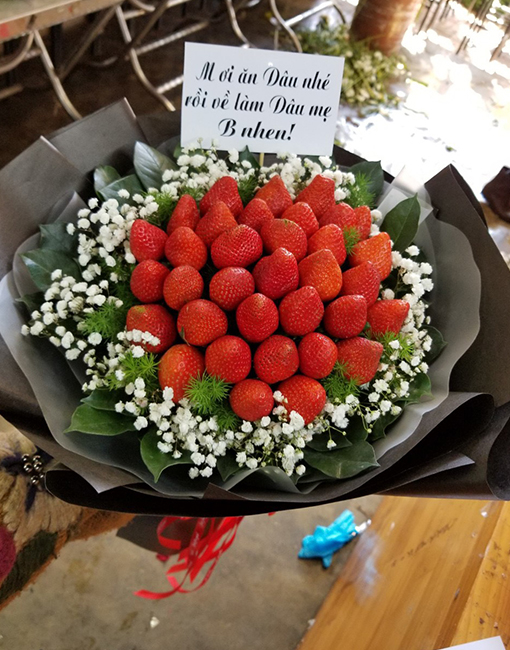 M ơi ăn Dâu nhé
rồi về làm Dâu mẹ
B nhen!